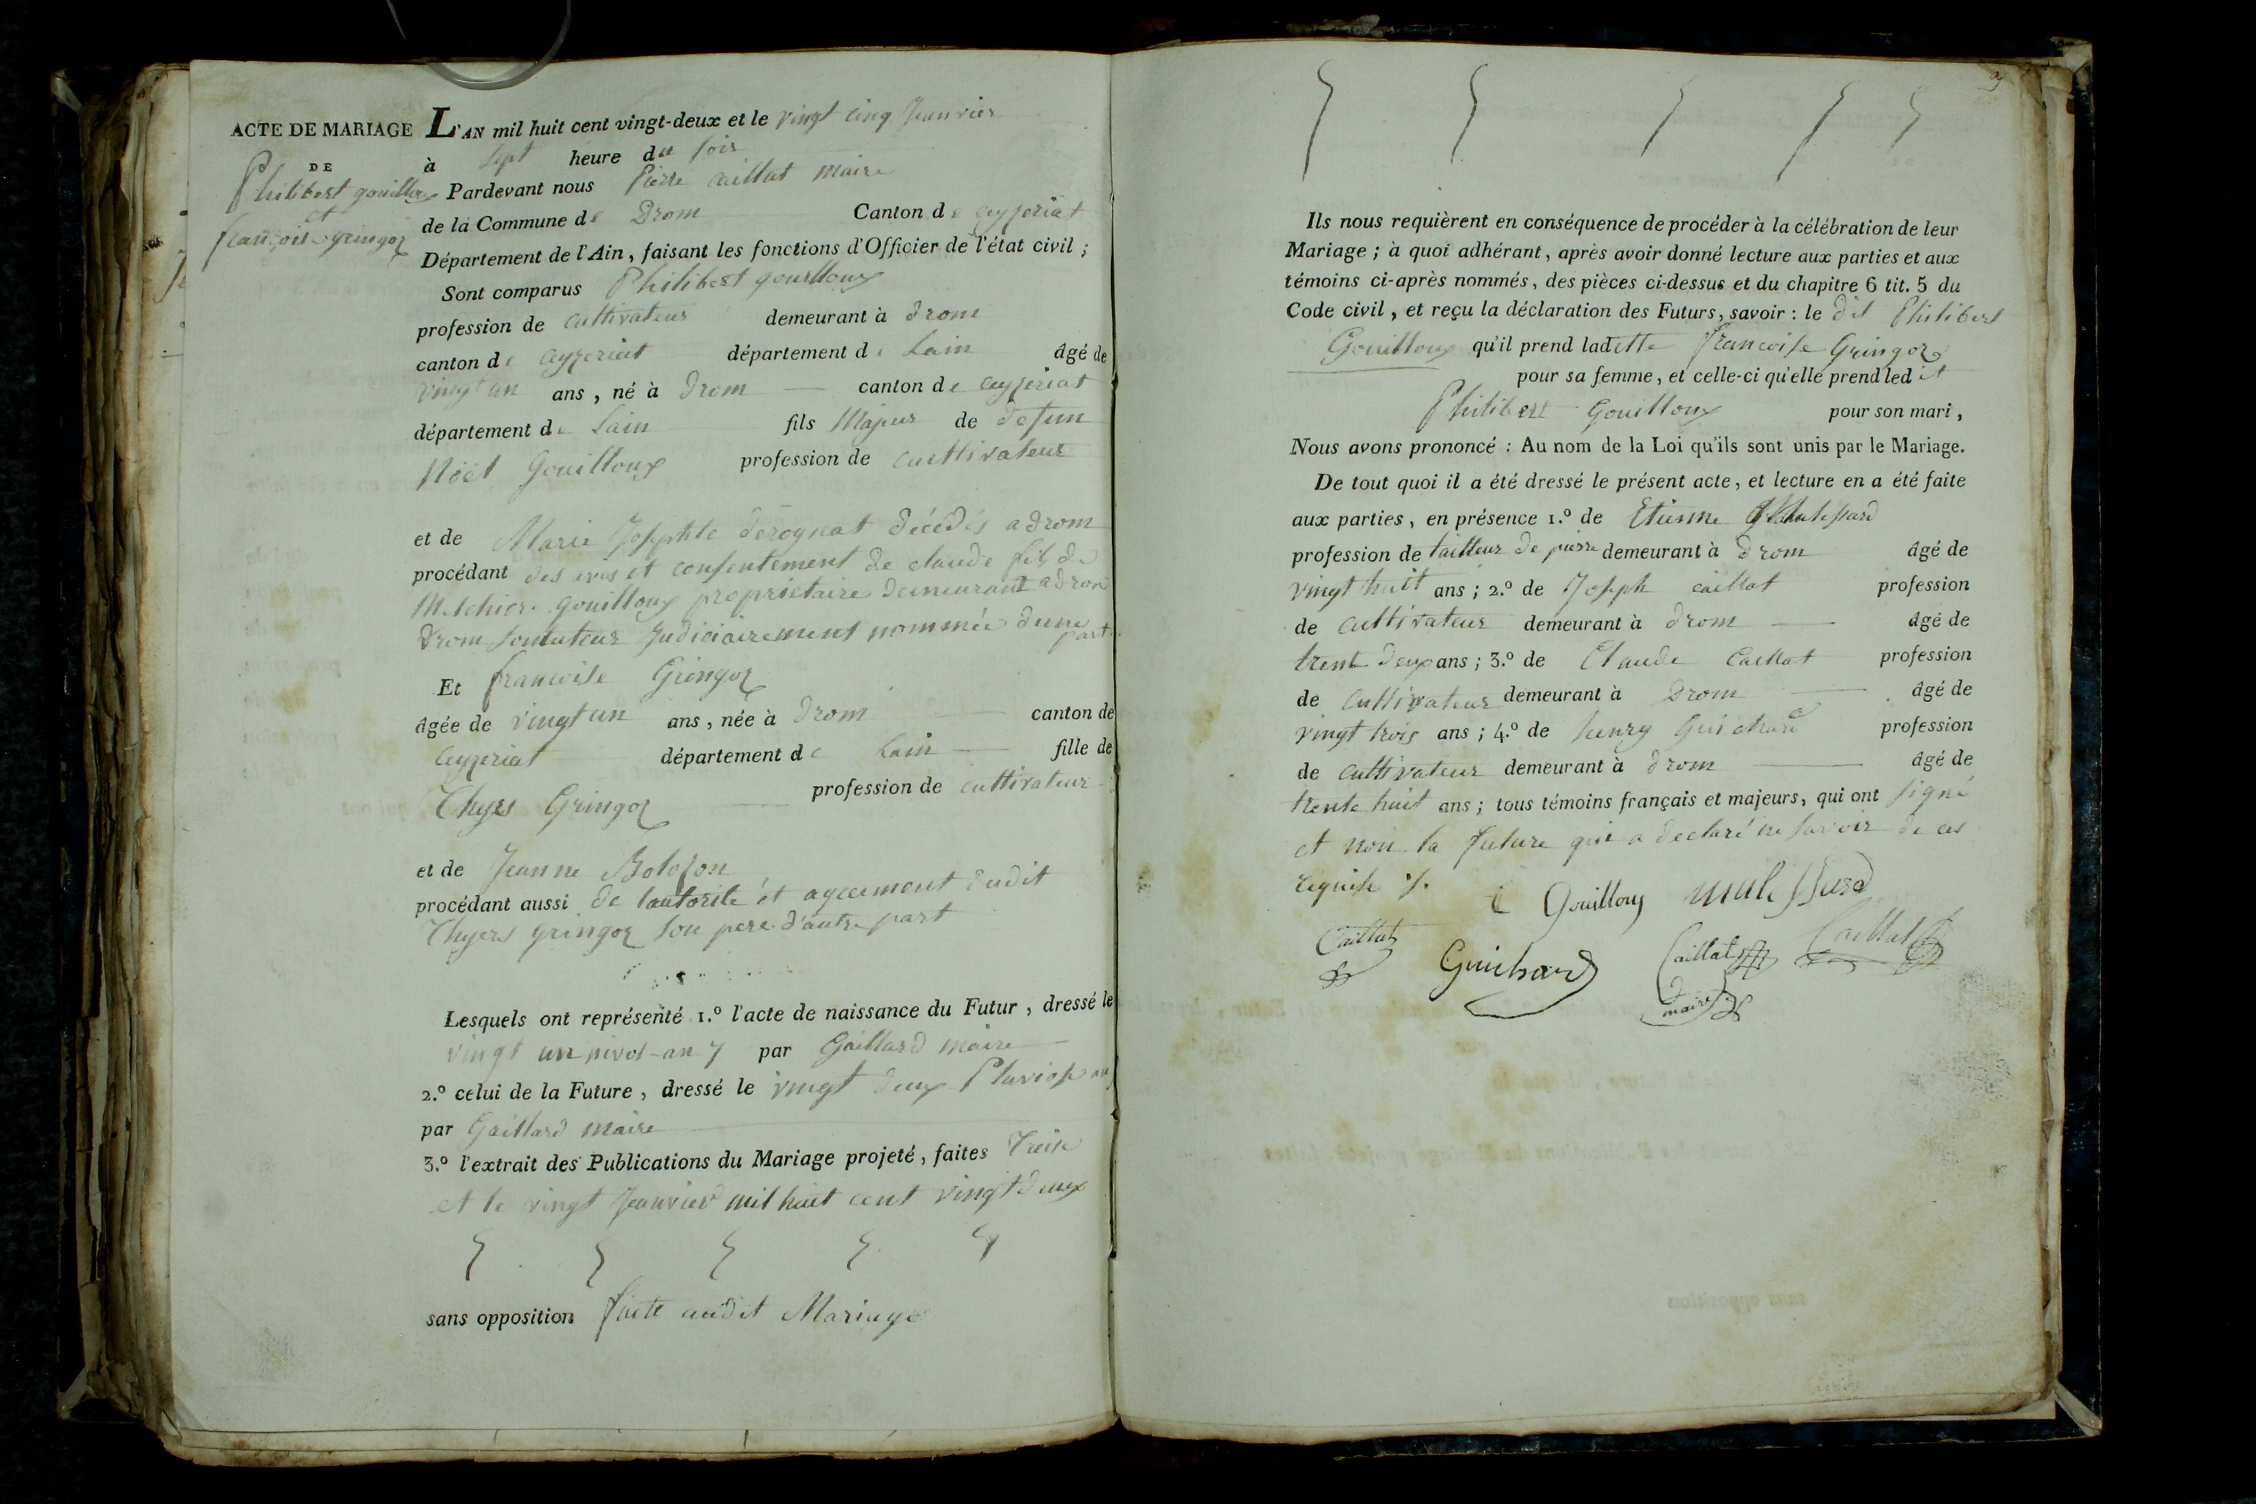 ACTE DE MARIAGE
DE
Philibert gouilloux
et
françoise gringoz
L'AN mil huit cent vingt-deux et le vingt cinq Jeanvier
à sept heure du soir
Pardevant nous Pierre Caillat maire
de la Commune de Drom Canton de Ceyzeriat
Département de l'Ain, faisant les fonctions d'Officier de l'état civil ;
Sont comparus Philibert gouilloux
profession de cultivateur demeurant à drom
canton de Ceyzeriat département de Lain âgé de
vingt un ans, né à drom canton de Ceyzeriat
département de Lain fils Majeur de defun
Nöel Gouilloux profession de cultivateur
et de Marie Josephte derognat décédés a drom
procédant des avis et consentement de claude fils de
Melchior gouilloux proprietaire demeurant a drom
drom sontuteur Judiciairement nommée dune
part
Et francoise Gringoz
âgée de vingt un ans, née à Drom canton de
Ceyzeriat département de Lain fille de
Thyers Gringoz profession de cultivateur
et de Jeanne Bolozon
procédant aussi de lautorité et agrement dudit
Thyers gringoz son pere d'autre part
Lesquels ont représenté 1.º l'acte de naissance du Futur, dressé le
vingt un nivos-an 7 par Gaillard maire
2.º celui de la Future, dressé le vingt deux Pluviose an
par Gaillard maire
3.º l'extrait des Publications du Mariage projeté, faites Treise
et le vingt Jeanvier mil huit cent vingt deux
sans opposition faite audit Mariage
Ils nous requièrent en conséquence de procéder à la célébration de leur
Mariage ; à quoi adhérant, après avoir donné lecture aux parties et aux
témoins ci-après nommés, des pièces ci-dessus et du chapitre 6 tit. 5 du
Code civil, et reçu la déclaration des Futurs, savoir : le dit Philibert
Gouilloux qu'il prend ladette francoise Gringoz
pour sa femme, et celle-ci qu'elle prend ledit
Philibert Gouilloux pour son mari,
Nous avons prononcé : Au nom de la Loi qu'ils sont unis par le Mariage.
De tout quoi il a été dressé le présent acte, et lecture en a été faite
aux parties, en présence 1.º de Etienne
profession de tailleur de pierre demeurant à drom âgé de
vingt huit ans ; 2.º de Joseph caillat profession
de cultivateur demeurant à drom âgé de
trent deux ans ; 3.º de Claude Caillat profession
de cultivateur demeurant à Drom âgé de
vingt trois ans ; 4.º de henry Guichard profession
de cultivateur demeurant à drom âgé de
trente huit ans ; tous témoins français et majeurs, qui ont signé
et non la future qui a declaré ne savoir de ces
requise ./.
Gouilloux
Caillat Guichard Caillat Caillat
maire